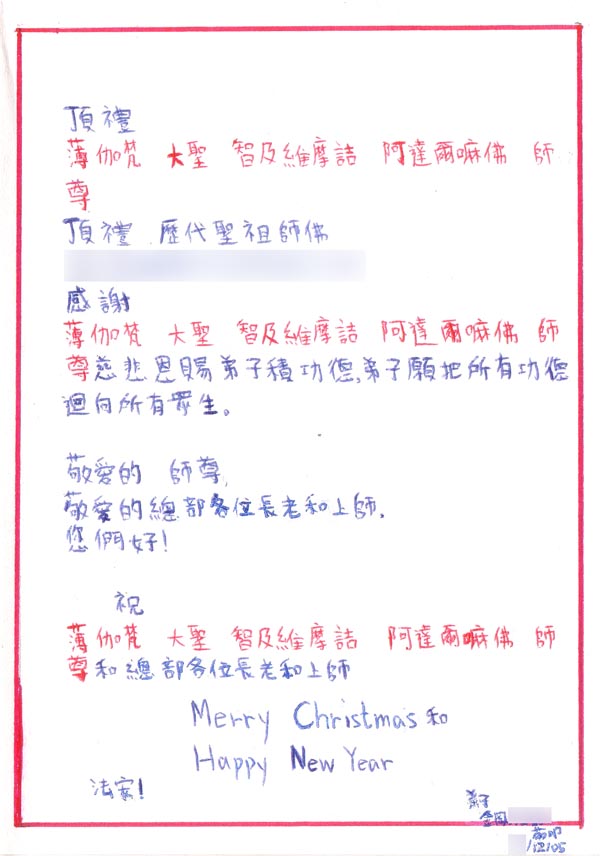 頂禮
薄伽梵 大聖 智及維摩詰 阿達爾嘛佛 師
尊
頂禮 歷代聖祖師佛
感謝
薄伽梵 大聖 智及維摩詰 阿達爾嘛佛 師
尊慈悲恩賜弟子積功德,弟子願把所有功德
迴向所有眾生。
敬愛的 師尊,
敬愛的總部各位長老和上師,
您們好!
祝
薄伽梵 大聖 智及維摩詰 阿達爾嘛佛 師
尊和總部各位長老和上師
Merry Christmas 和
Happy New Year
法安!
弟子
/12/05